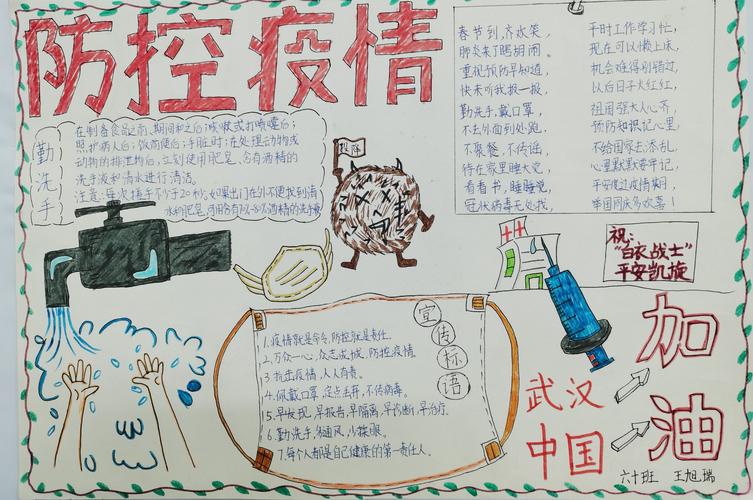 防控疫情
勤洗手
在制备食品之前、期间和之后；咳嗽或打喷嚏后；
照护病人后；饭前便后；手脏时；在处理动物或
动物的排泄物后，立刻使用肥皂、含有酒精的
洗手液和清水进行清洁。
注意：每次搓手不少于20秒；如果出门在外不便找到清
水和肥皂，可用含有70%-80%酒精的洗手液
投降
春节到，齐欢笑，
肺炎来了瞎胡闹。
重视预防早知道，
快来听我报一报。
勤洗手，戴口罩，
不去外面到处跑，
不聚餐、不传谣，
待在家里睡大觉，
看看书，睡睡觉，
冠状病毒无处找，
平时工作学习忙，
现在可以懒上床，
机会难得别错过，
以后日子火红红，
祖国强大人心齐，
预防知识记心里，
不给国家去添乱，
心里默默要牢记，
平安度过疫情期，
举国同庆多欢喜！
祝：
"白衣战士"
平安凯旋
宣传标语
1.疫情就是命令，防控就是责任。
2.万众一心，众志成城，防控疫情
3.抗击疫情，人人有责。
4.佩戴口罩，定点去开，不传病毒。
5.早发现，早报告，早隔离，早诊断，早治疗。
6.勤洗手，多通风，少揉眼。
7.每个人都是自己健康的第一责任人。
武汉
中国
加油
六十班 王旭瑞